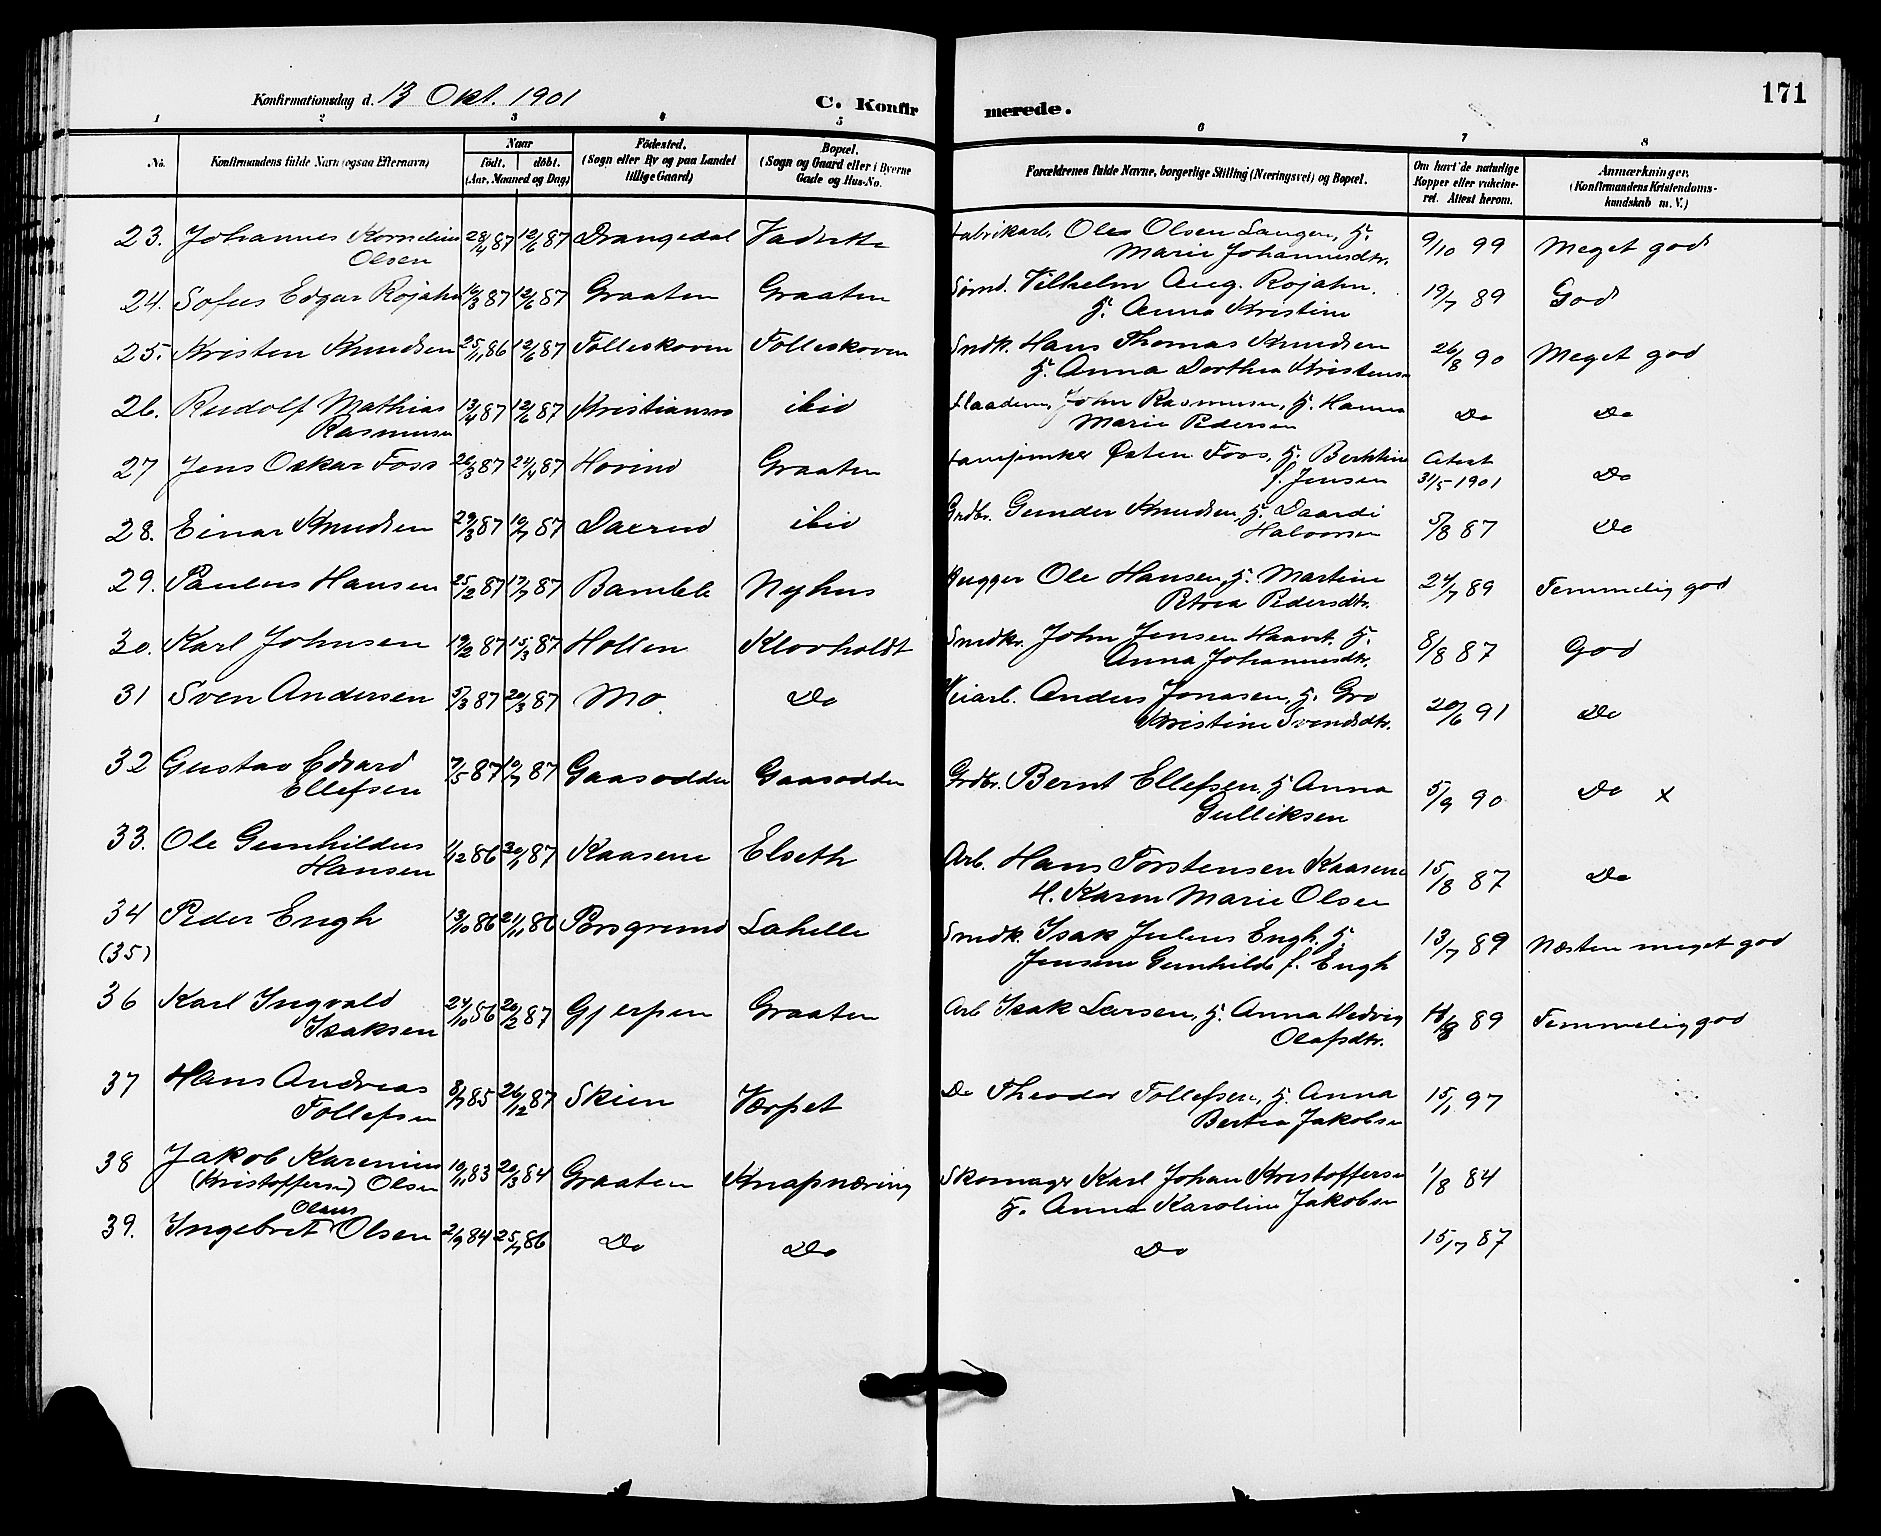 171
Konfirmationsdag d. 13 Okt. 1901 C. Konfirmerede.
1 2 3 4 5 6 7 8
No. Konfirmandens fulde Navn (ogsaa Efternavn) Naar født. døbt. (Aar, Maaned og Dag) Fødested. (Sogn eller By og paa Landet tillige Gaard) Bopæl. (Sogn og Gaard eller i Byerne Gade og Hus-No. Forældrenes fulde Navne, borgerlige Stilling (Næringsvei) og Bopæl. Om havt de naturlige Kopper eller vakcineret. Attest herom. Anmærkninger. (Konfirmandens Kristendomskundskab m. V.)
23. Johannes Kornelius 28/4 87 12/6 87 Drangedal Fabrikarb. Ole Olsen Langen, H. 9/10 99 Meget god
Olsen Marie Johannesdtr.
24. Sofus Edgar Rojahn 16/3 87 12/6 87 Graaten Graaten Vilhelm Aug. Rojahn. 19/7 89 God
H. Anna Kristine
25. Kristen Knudsen 25/11 86 12/6 87 Folleskoven Folleskoven Sndk. Hans Thomas Knudsen 26/8 90 Meget god
H. Anna Dorthea Kristensen
26. Rudolf Mathias 13/4 87 12/6 87 ibid John Rasmusen, H. Hanna Do Do
Rasmusen Marie Pedersen
27 Jens Oskar Foss 26/3 87 24/4 87 Hovind Graaten Østen Foss, H. Attest Do
f. Jensen 31/5 1901
28. Einar Knudsen 29/3 87 10/7 87 ibid Grdbr. Gunder Knudsen, H. 5/8 87 Do
Halvorsen
29. Paulus Hansen 25/2 87 17/7 87 Bamble Nyhus Ole Hansen, H. Martine 24/7 89 Temmelig god
Petrea Pedersdtr.
30. Karl Johnsen 19/2 87 15/3 87 Hollen Klovholdt John Jensen H. 8/8 87 God
Anna Johannesdtr.
31 Sven Andersen 5/3 87 20/3 87 Mo Do Veiarb. Anders Jonasen, H. Gro 20/6 91 Do
Kristine Svendsdtr.
32 Gustav Edvard 7/5 87 10/7 87 Gaasodden Gaasodden Grdbr. Bernt Ellefsen, H Anna 5/9 90 Do x
Ellefsen Gulliksen
33. Ole Gunhildus 1/12 86 30/1 87 Kaasene Elseth Arb. Hans Torstensen Kaasene 15/8 87 Do
Hansen H. Karen Marie Olsen
34 Peder Engh 13/10 86 21/11 86 Porsgrund Lahelle Snedk. Isak Julius Engh, H. 13/7 89 Næsten meget god
(35) Jensine Gunhilde f. Engh
36 Karl Ingvald 24/10 86 20/2 87 Gjerpen Graaten Arb Isak Larsen, H. Anna Hedvig 89 Temmelig god
Isaksen Olafsdtr.
37 Hans Andreas 8/7 85 26/12 87 Skien Værpet Do Theodor Tollefsen, H. Anna 15/1 97
Tollefsen Bertea Jakobsen
38 Jakob Karenius 10/11 83 20/3 84 Graaten Knapnæring Skomager Karl Johan Kristoffersen 1/8 84
(Kristoffersen) Olsen H. Anna Karoline Jakobsen
Olaus
39. Ingebret Olsen 2/9 84 25/7 86 Do Do Do 15/7 87